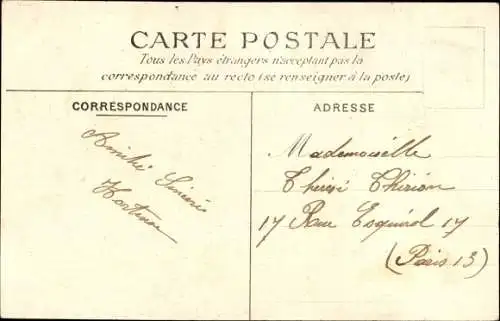 CARTE POSTALE
Tous les Pays étrangers n'acceptent pas la
correspondance au recto (se renseigner à la poste)
CORRESPONDANCE
Amitié Sincère
ADRESSE
Mademoiselle
Thirion
17 Rue Esquirol 17
(Paris 13)